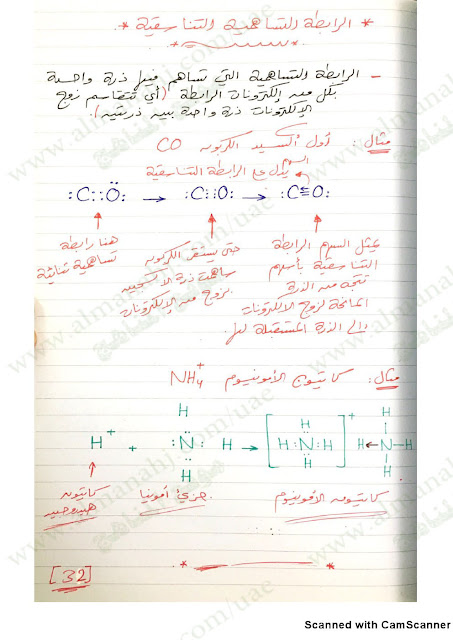 * الرابطة التساهمية التناسقية *
- الرابطة التساهمية التي تساهم فيها ذرة واحدة
بكل من إلكترونات الرابطة (أي تتقاسم زوج
الإلكترونات ذرة واحدة بين ذرتين).
مثال: أول أكسيد الكربون CO
السهم يدل على الرابطة التناسقية
:C::Ö: → :C::O: → :C≡O:
هنا رابطة
تساهمية ثنائية
حتى يستقر الكربون
ساهمت ذرة الأكسجين
بزوج من الإلكترونات
يمثل السهم الرابطة
التناسقية بأسهم
تتجه من الذرة
المانحة لزوج الإلكترونات
إلى الذرة المستقبلة لها
مثال: كاتيون الأمونيوم NH4+
H+ + H:N:H H H → [H:N:H H H]+ H←N-H H H
كاتيون
هيدروجين
جزيء أمونيا
كاتيون الأمونيوم
[32]
www.almanahj.com/uae
موقع المناهج
Scanned with CamScanner